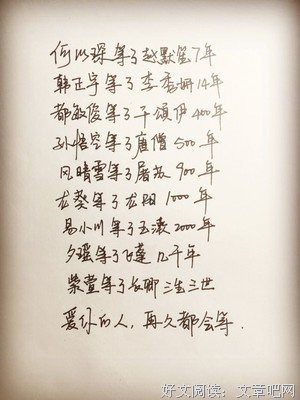 何以琛等了赵默笙7年
韩正宇等了李秀妍14年
都敏俊等了千颂伊400年
孙悟空等了唐僧500年
风晴雪等了屠苏900年
龙葵等了龙阳1000年
易小川等了玉漱2000年
夕瑶等了飞蓬几千年
紫萱等了长卿三生三世
爱你的人，再久都会等.
好文阅读：文章吧网